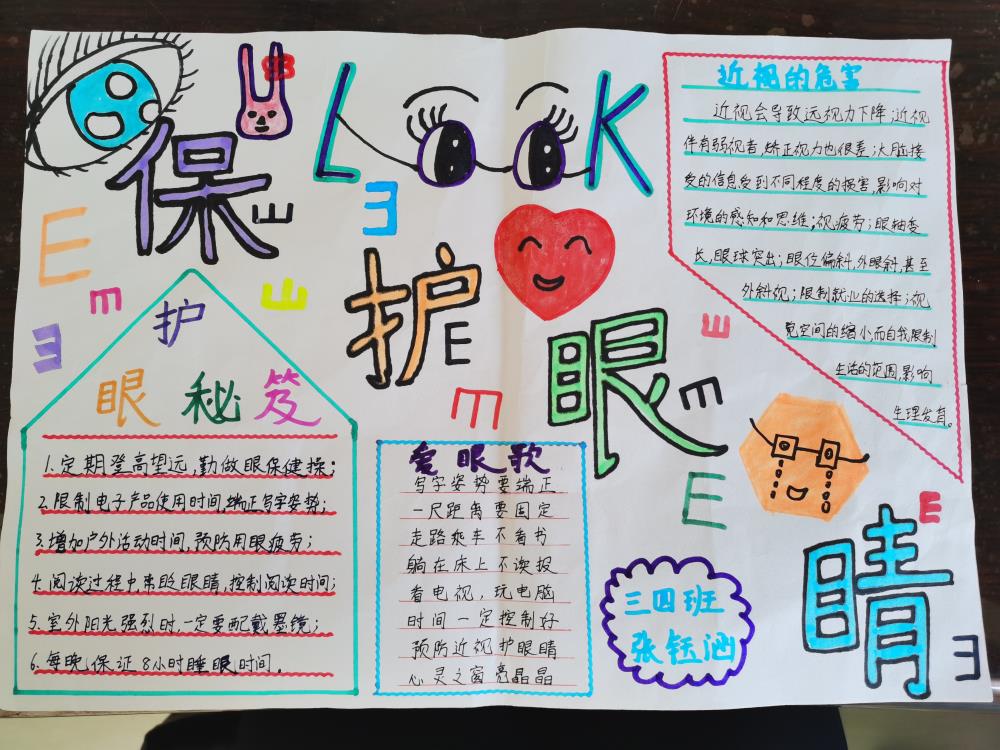 LOOK
保护眼睛
E
E
E
E
E
E
E
E
E
E
E
E
近视的危害
近视会导致远视力下降;近视
伴有弱视者,矫正视力也很差;大脑接
受的信息受到不同程度的损害,影响对
环境的感知和思维;视疲劳;眼轴变
长,眼球突出;眼位偏斜,外眼斜,甚至
外斜视;限制就业的选择;视
觉空间的缩小,而自我限制
生活的范围,影响
生理发育。
护
眼秘笈
1.定期登高望远,勤做眼保健操;
2.限制电子产品使用时间,端正写字姿势;
3.增加户外活动时间,预防用眼疲劳;
4.阅读过程中常眨眼睛,控制阅读时间;
5.室外阳光强烈时,一定要配戴墨镜;
6.每晚保证8小时睡眠时间.
爱眼歌
写字姿势要端正
一尺距离要固定
走路乘车不看书
躺在床上不读报
看电视,玩电脑
时间一定控制好
预防近视护眼睛
心灵之窗亮晶晶
三四班
张钰涵